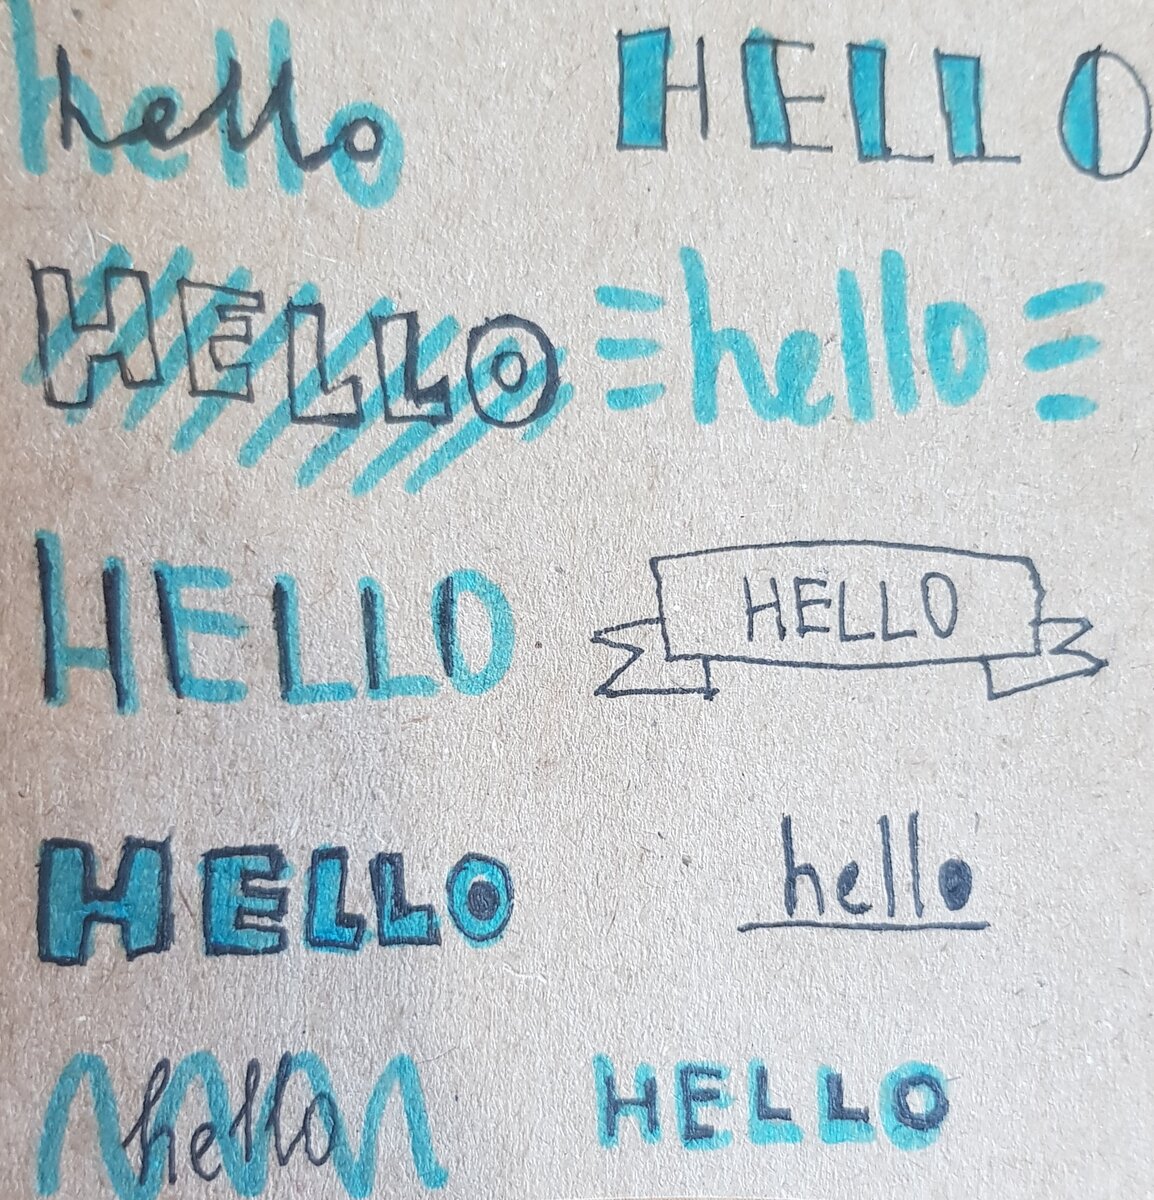 hello HELLO
HELLO hello
HELLO HELLO
HELLO hello
hello HELLO